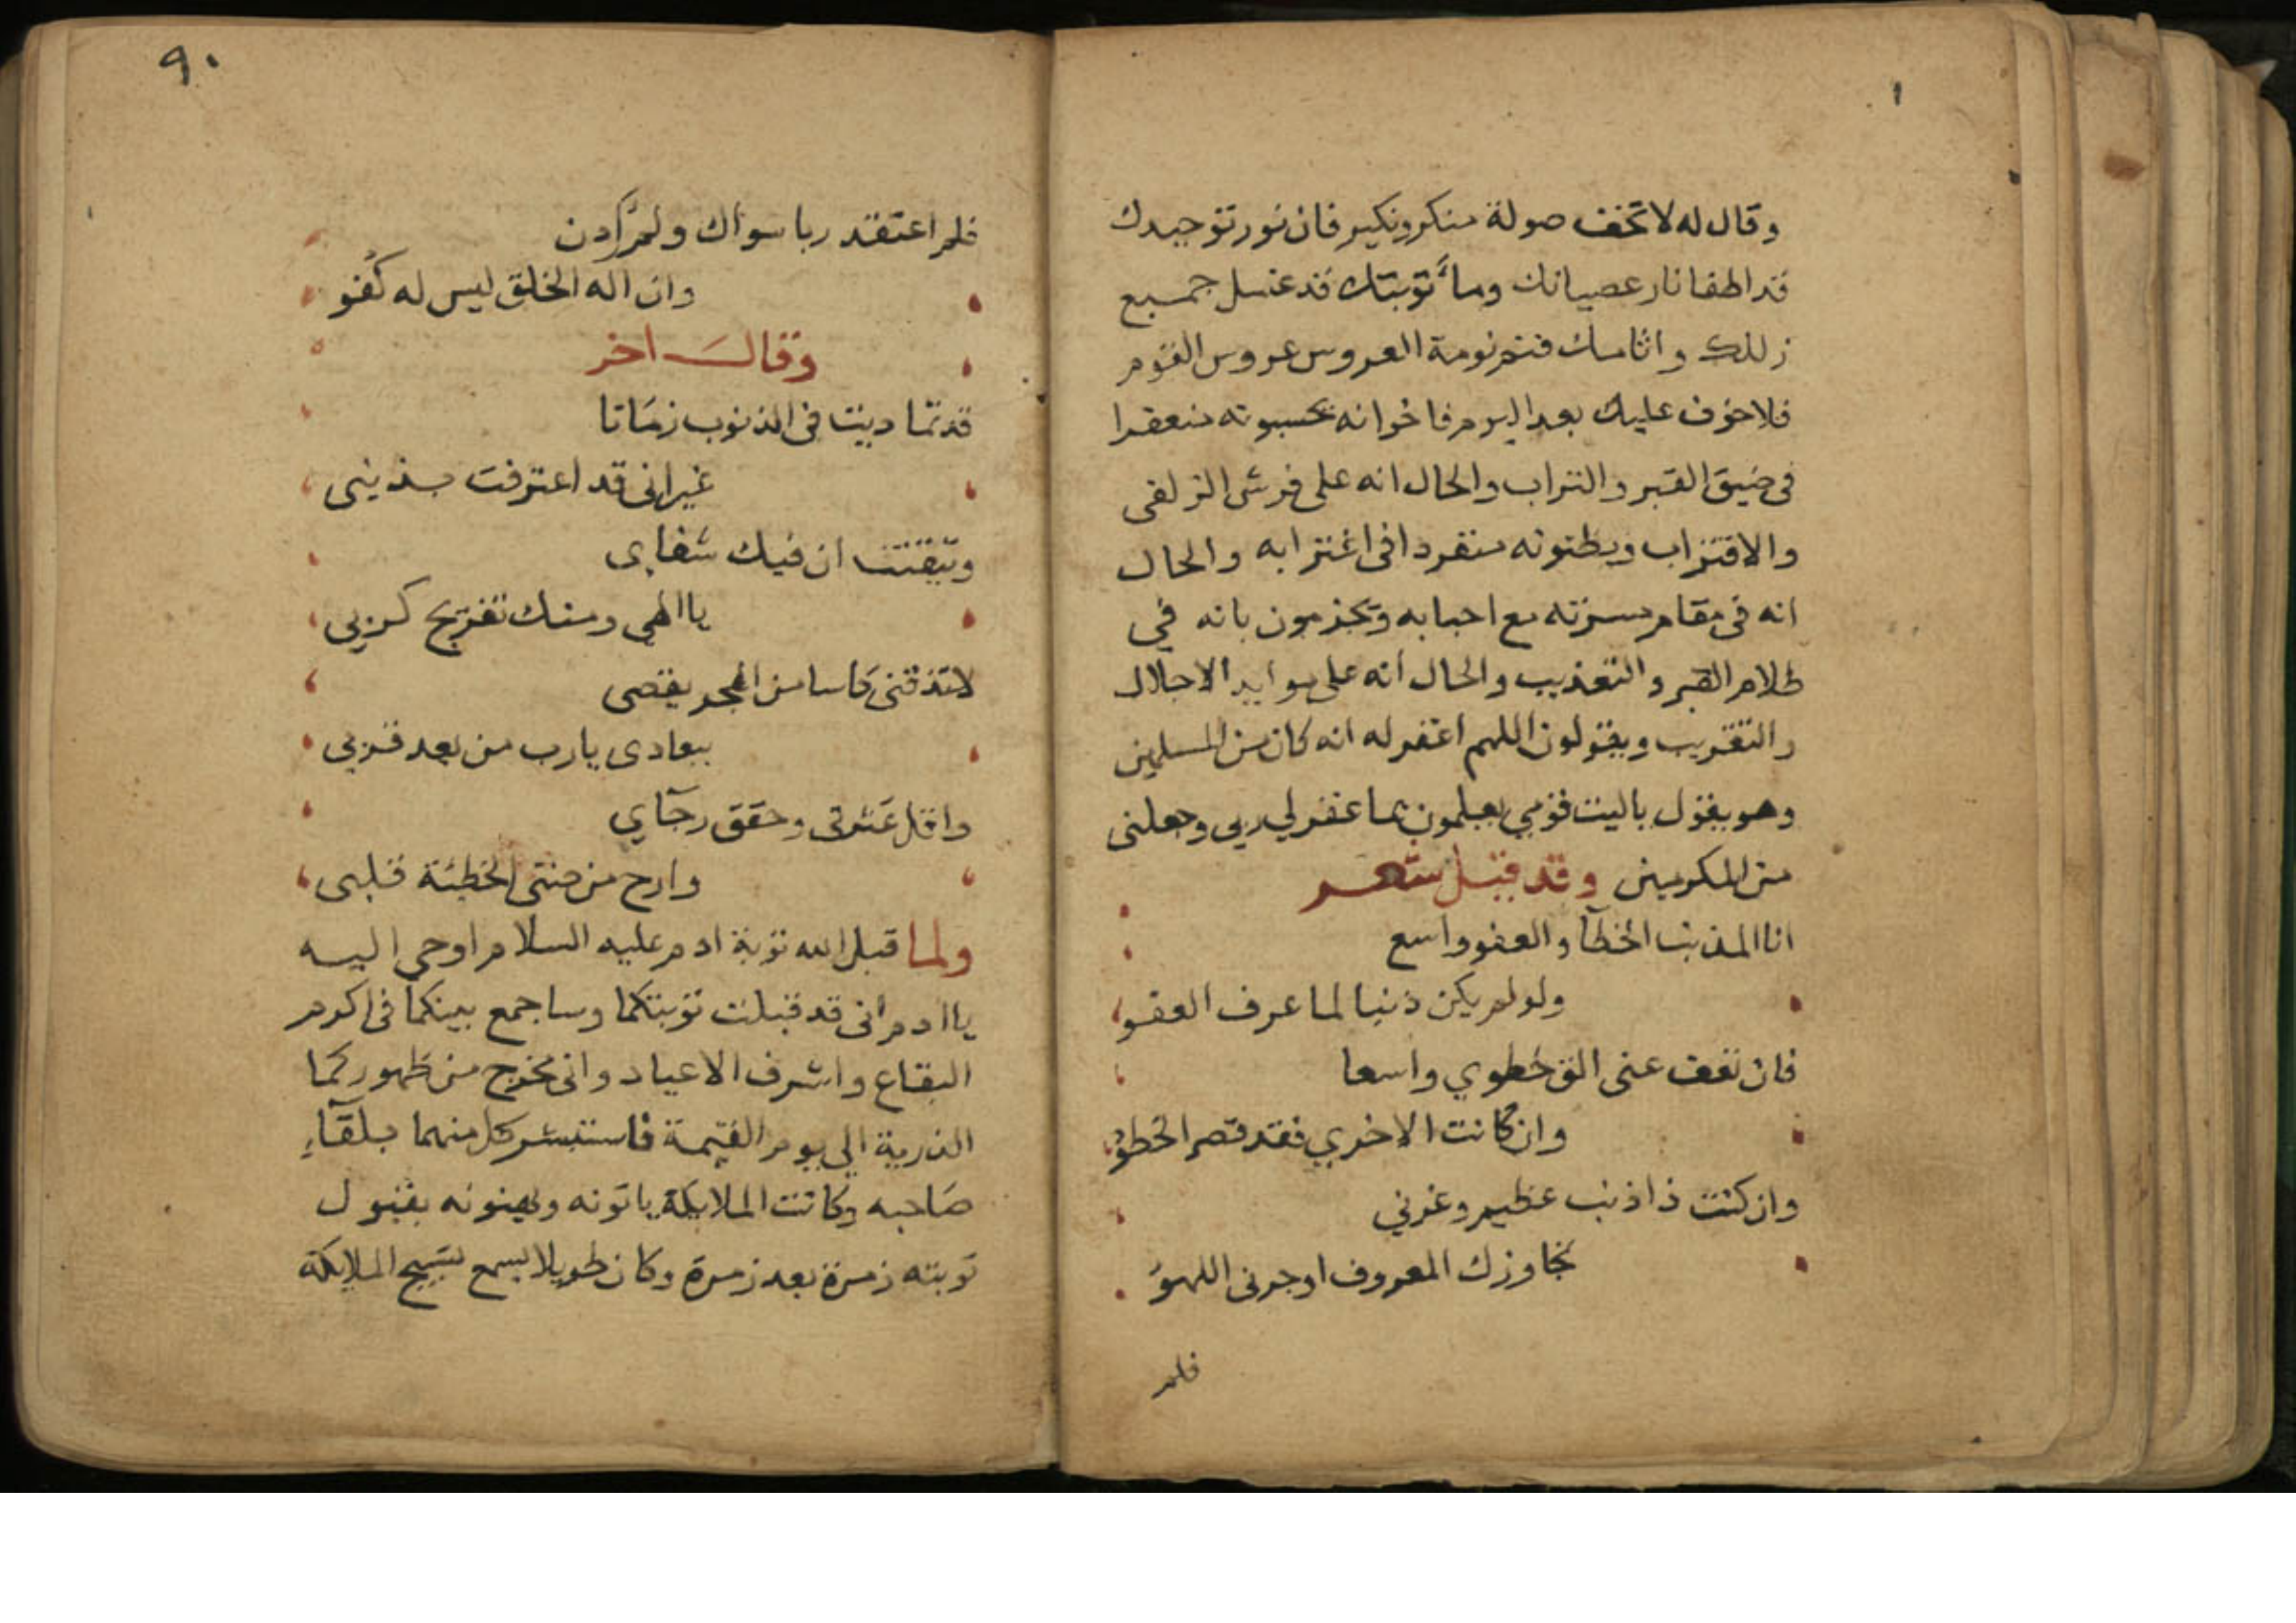 وقال له لا تخف صولة منكر ونكير فان نور توحيدك
قد اطفا نار عصيانك وماء توبتك قد غسل جميع
زللك واثامك فنم نومة العروس عروس القوم
فلا خوف عليك بعد اليوم فاخوانه يحسبونه منعفرا
في ضيق القبر والتراب والحال انه على فرش الزلفى
والاقتراب ويظنونه منفردا في اغترابه والحال
انه في مقام مسرته مع احبابه ويجزمون بانه في
ظلام القبر والتعذيب والحال انه على موايد الاجلال
والتقريب ويقولون اللهم اغفر له انه كان من المسلمين
وهو يقول ياليت قومي يعلمون بما غفر لي ربي وجعلني
من المكرمين وقد قيل شعر
انا المذنب الخطآ والعفو واسع
ولو لم يكن ذنبا لما عرف العفو
فان تعف عني الق خطوي واسعا
وان كانت الاخري فقد قصر الخطو
وان كنت ذا ذنب عظيم وغرني
تجاوزك المعروف او جرني اللهو
فلم
٩٠
فلم اعتقد ربا سواك ولم ادن
وان اله الخلق ليس له كفو
وقال اخر
قد تماديت في الذنوب زمانا
غير اني قد اعترفت بذنبي
وتيقنت ان فيك شفاي
يا الهي ومنك تفريج كربي
لا تذقني كاسا من الهجر يقصي
ببعادي يارب من بعد قربي
واقل عثرتي وحقق رجآي
وارح من الخطئة قلبي
ولما قبل الله توبة ادم عليه السلام اوحى اليه
يا ادم اني قد قبلت توبتكما وساجمع بينكما في اكرم
البقاع واشرف الاعياد واني مخرج من ظهوركما
الذرية الي يوم القيمة فاستبشر كل منهما بلقآء
صاحبه وكانت الملايكة ياتونه ويهنونه بقبول
توبته زمرة بعد زمرة وكان طويلا يسمع تسبيح الملايكة